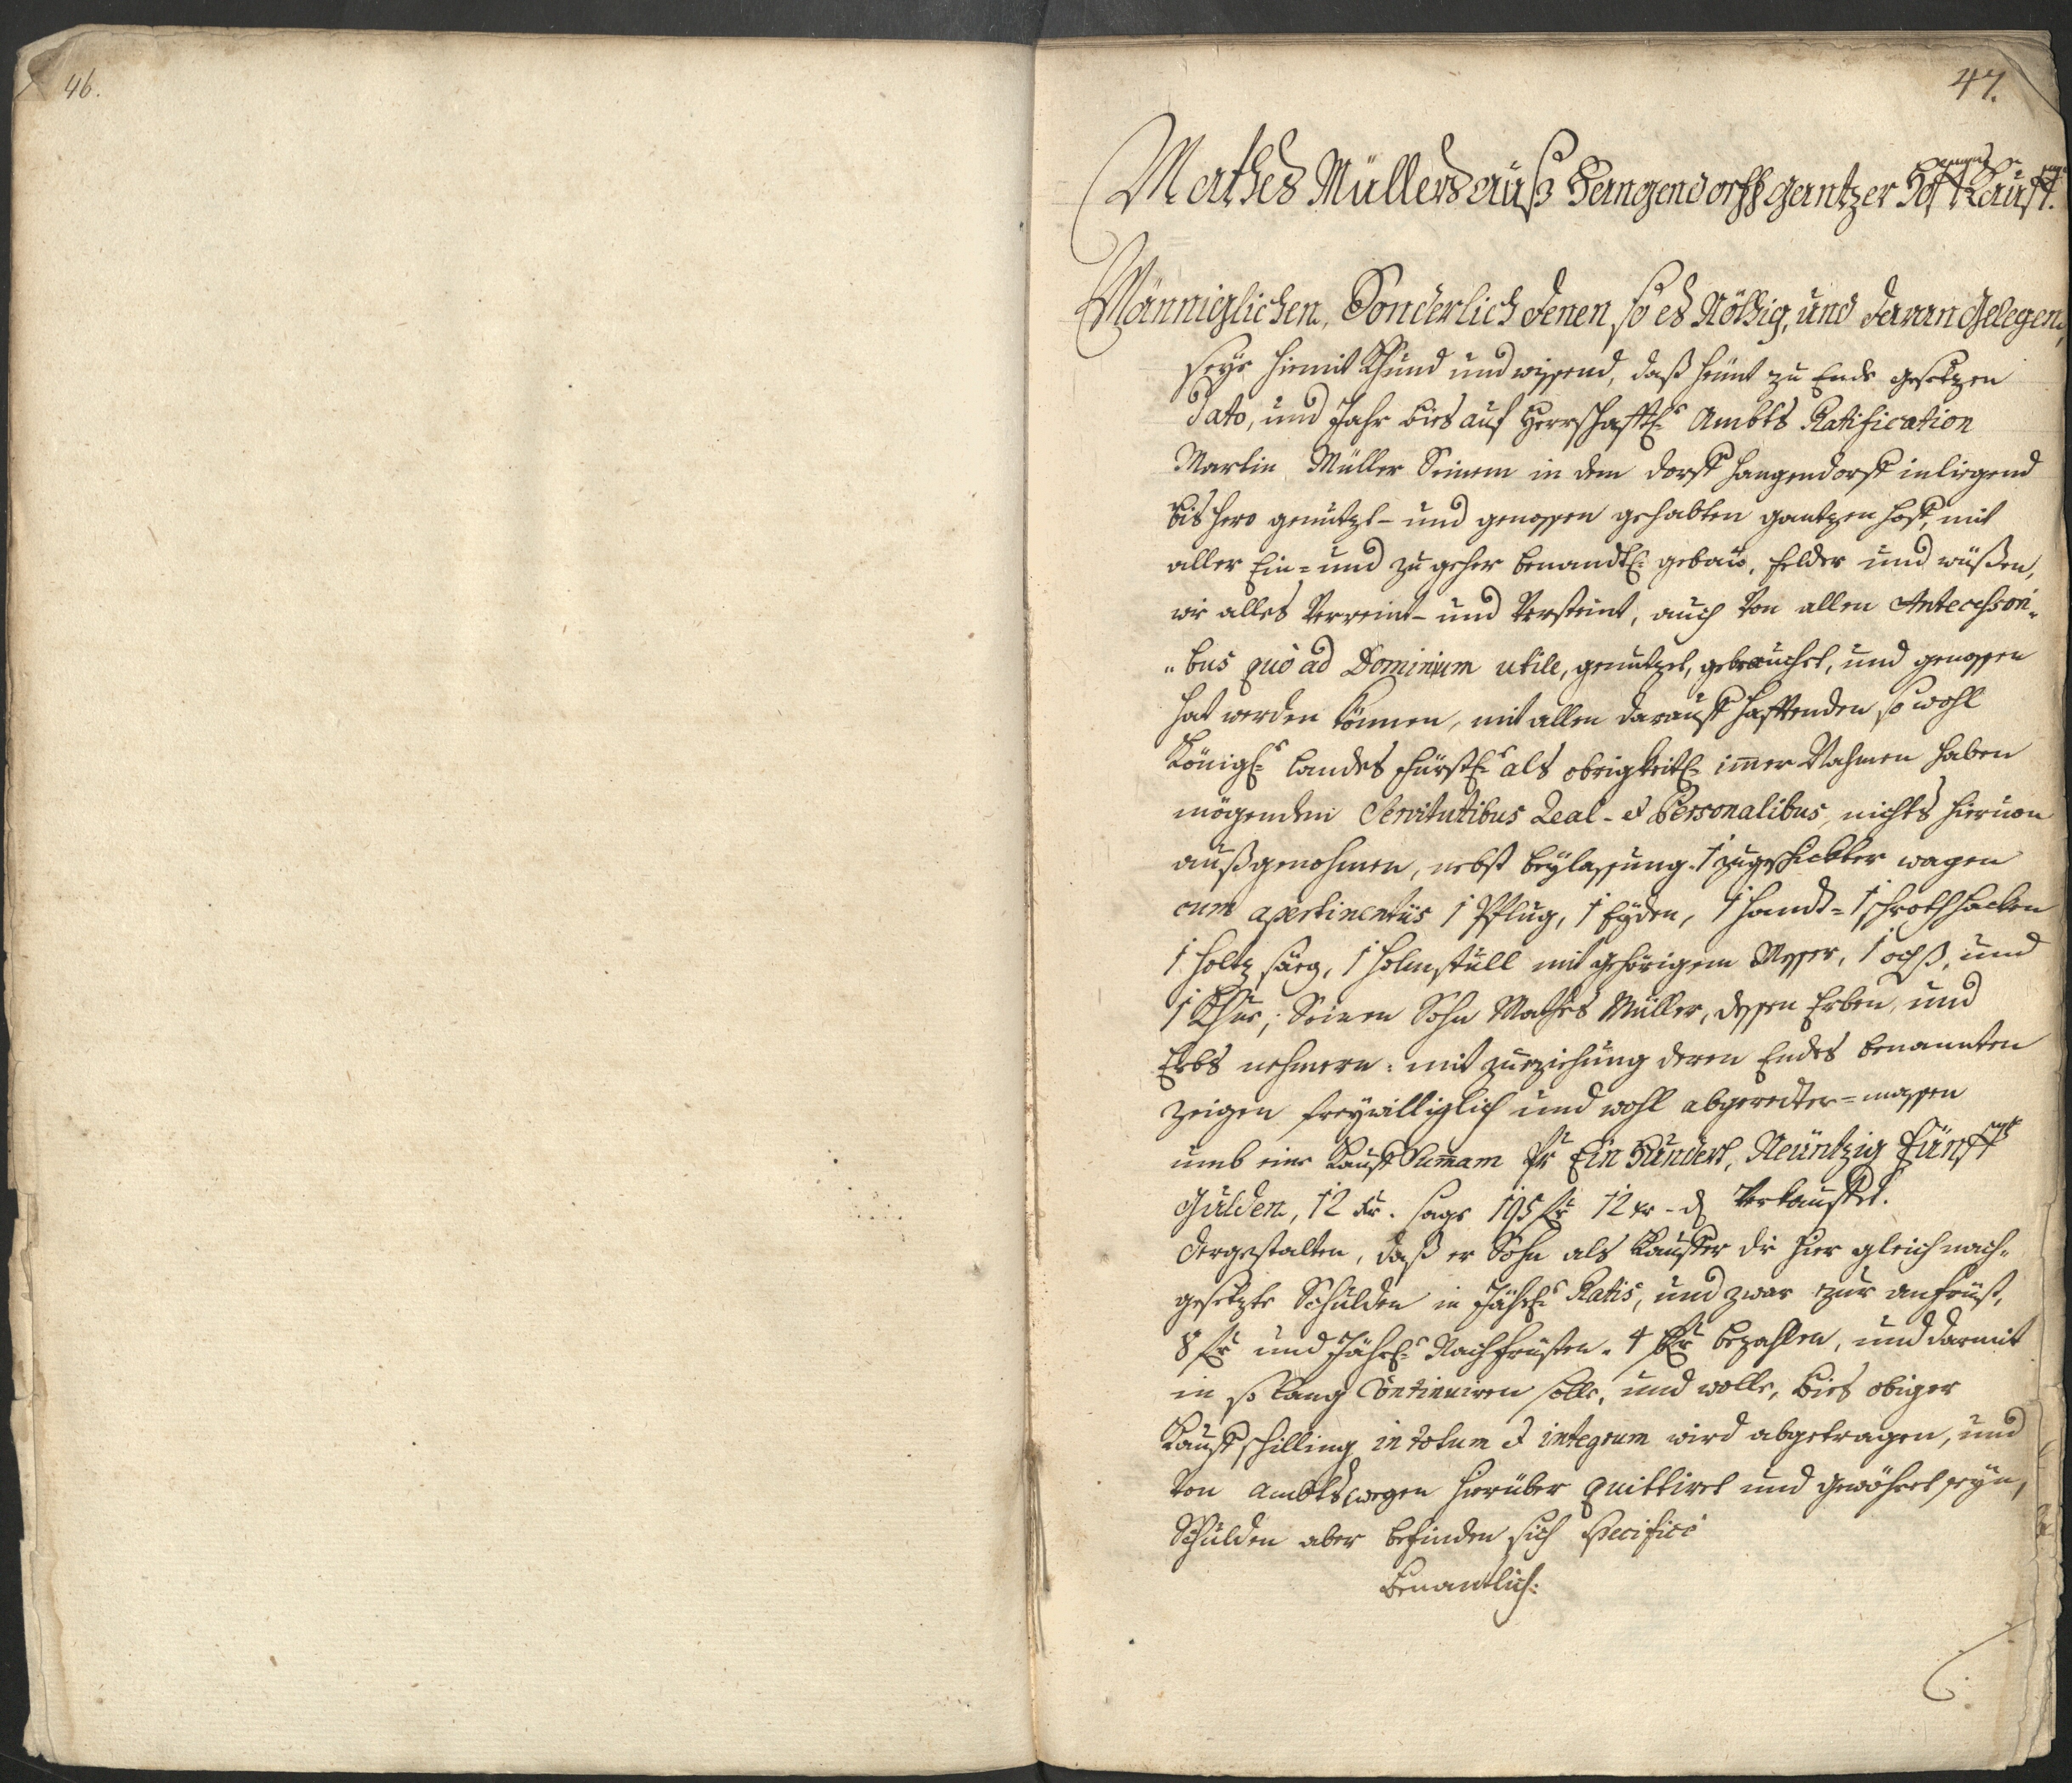 46.
47.
Mathes Müllers auß Hangendorff gantzer Hoff Kauff.
Männiglichen, Sonderlich denen, so es Nöthig, und daran Gelegen,
seye hiemit Khund und wissend, daß heünt zu Ende gesetzen
Dato, und Jahr bies auf Herrschafftl: Ambts Ratification
Martin Müller Seinem in dem dorff Hangendorff inliegend
bishero genutzt- und genossen gehabten gantzen hoff, mit
aller Ein= und zugeher benandtl: gebaü, felder und wüßen,
wie alles Verreint- und Versteint, auch Von allen Antecessori-
"bus quò ad Dominium utile, genutzet, gebrauchet, und genossen
hat werden können, mit allen darauff hafftenden so wohl
Königl: Landes fürstl: als obrigkeitl: imer Nahmen haben
mögenden Servitutibus Real- et Personalibus, nichts hieruon
außgenohmen, nebst beÿlassung 1 zugeschickter wagen
cum apertinentiis 1 Pflug, 1 Eÿden, 1 handt= 1 schrothhacken
1 holtz säeg, 1 holmstull mit gehörigem Messer, 1 ochß, und
1 Khue, Seinen Sohn Mathes Müller, dessen Erben, und
Erbs nehmern: mit zuziehung deren Endes benannten
Zeigen freÿwilliglich und wohl abgeredter=massen
umb eine Kauff Sumam Pr Ein Hundert, Neüntzig Fünff
Gulden, 12 xr. sage 195 fr 12 xr - d Verkauffet.
dergestalten, daß er Sohn als Kauffer die hier gleich nach-
gesetzte Schulden in Jährl: Ratis, und zwar zur anfrüst,
8 fr und Jährl: Nachfrüsten. 4 fr bezahlen, und darmit
in so lang Continuiren solle, und wolle, bies obiger
Kauffschilling in totum et integrum wird abgetragen, und
Von Ambtswegen hierüber quittiret und gewöhret seÿn,
Schulden aber befinden sich specificè
Benantlich: